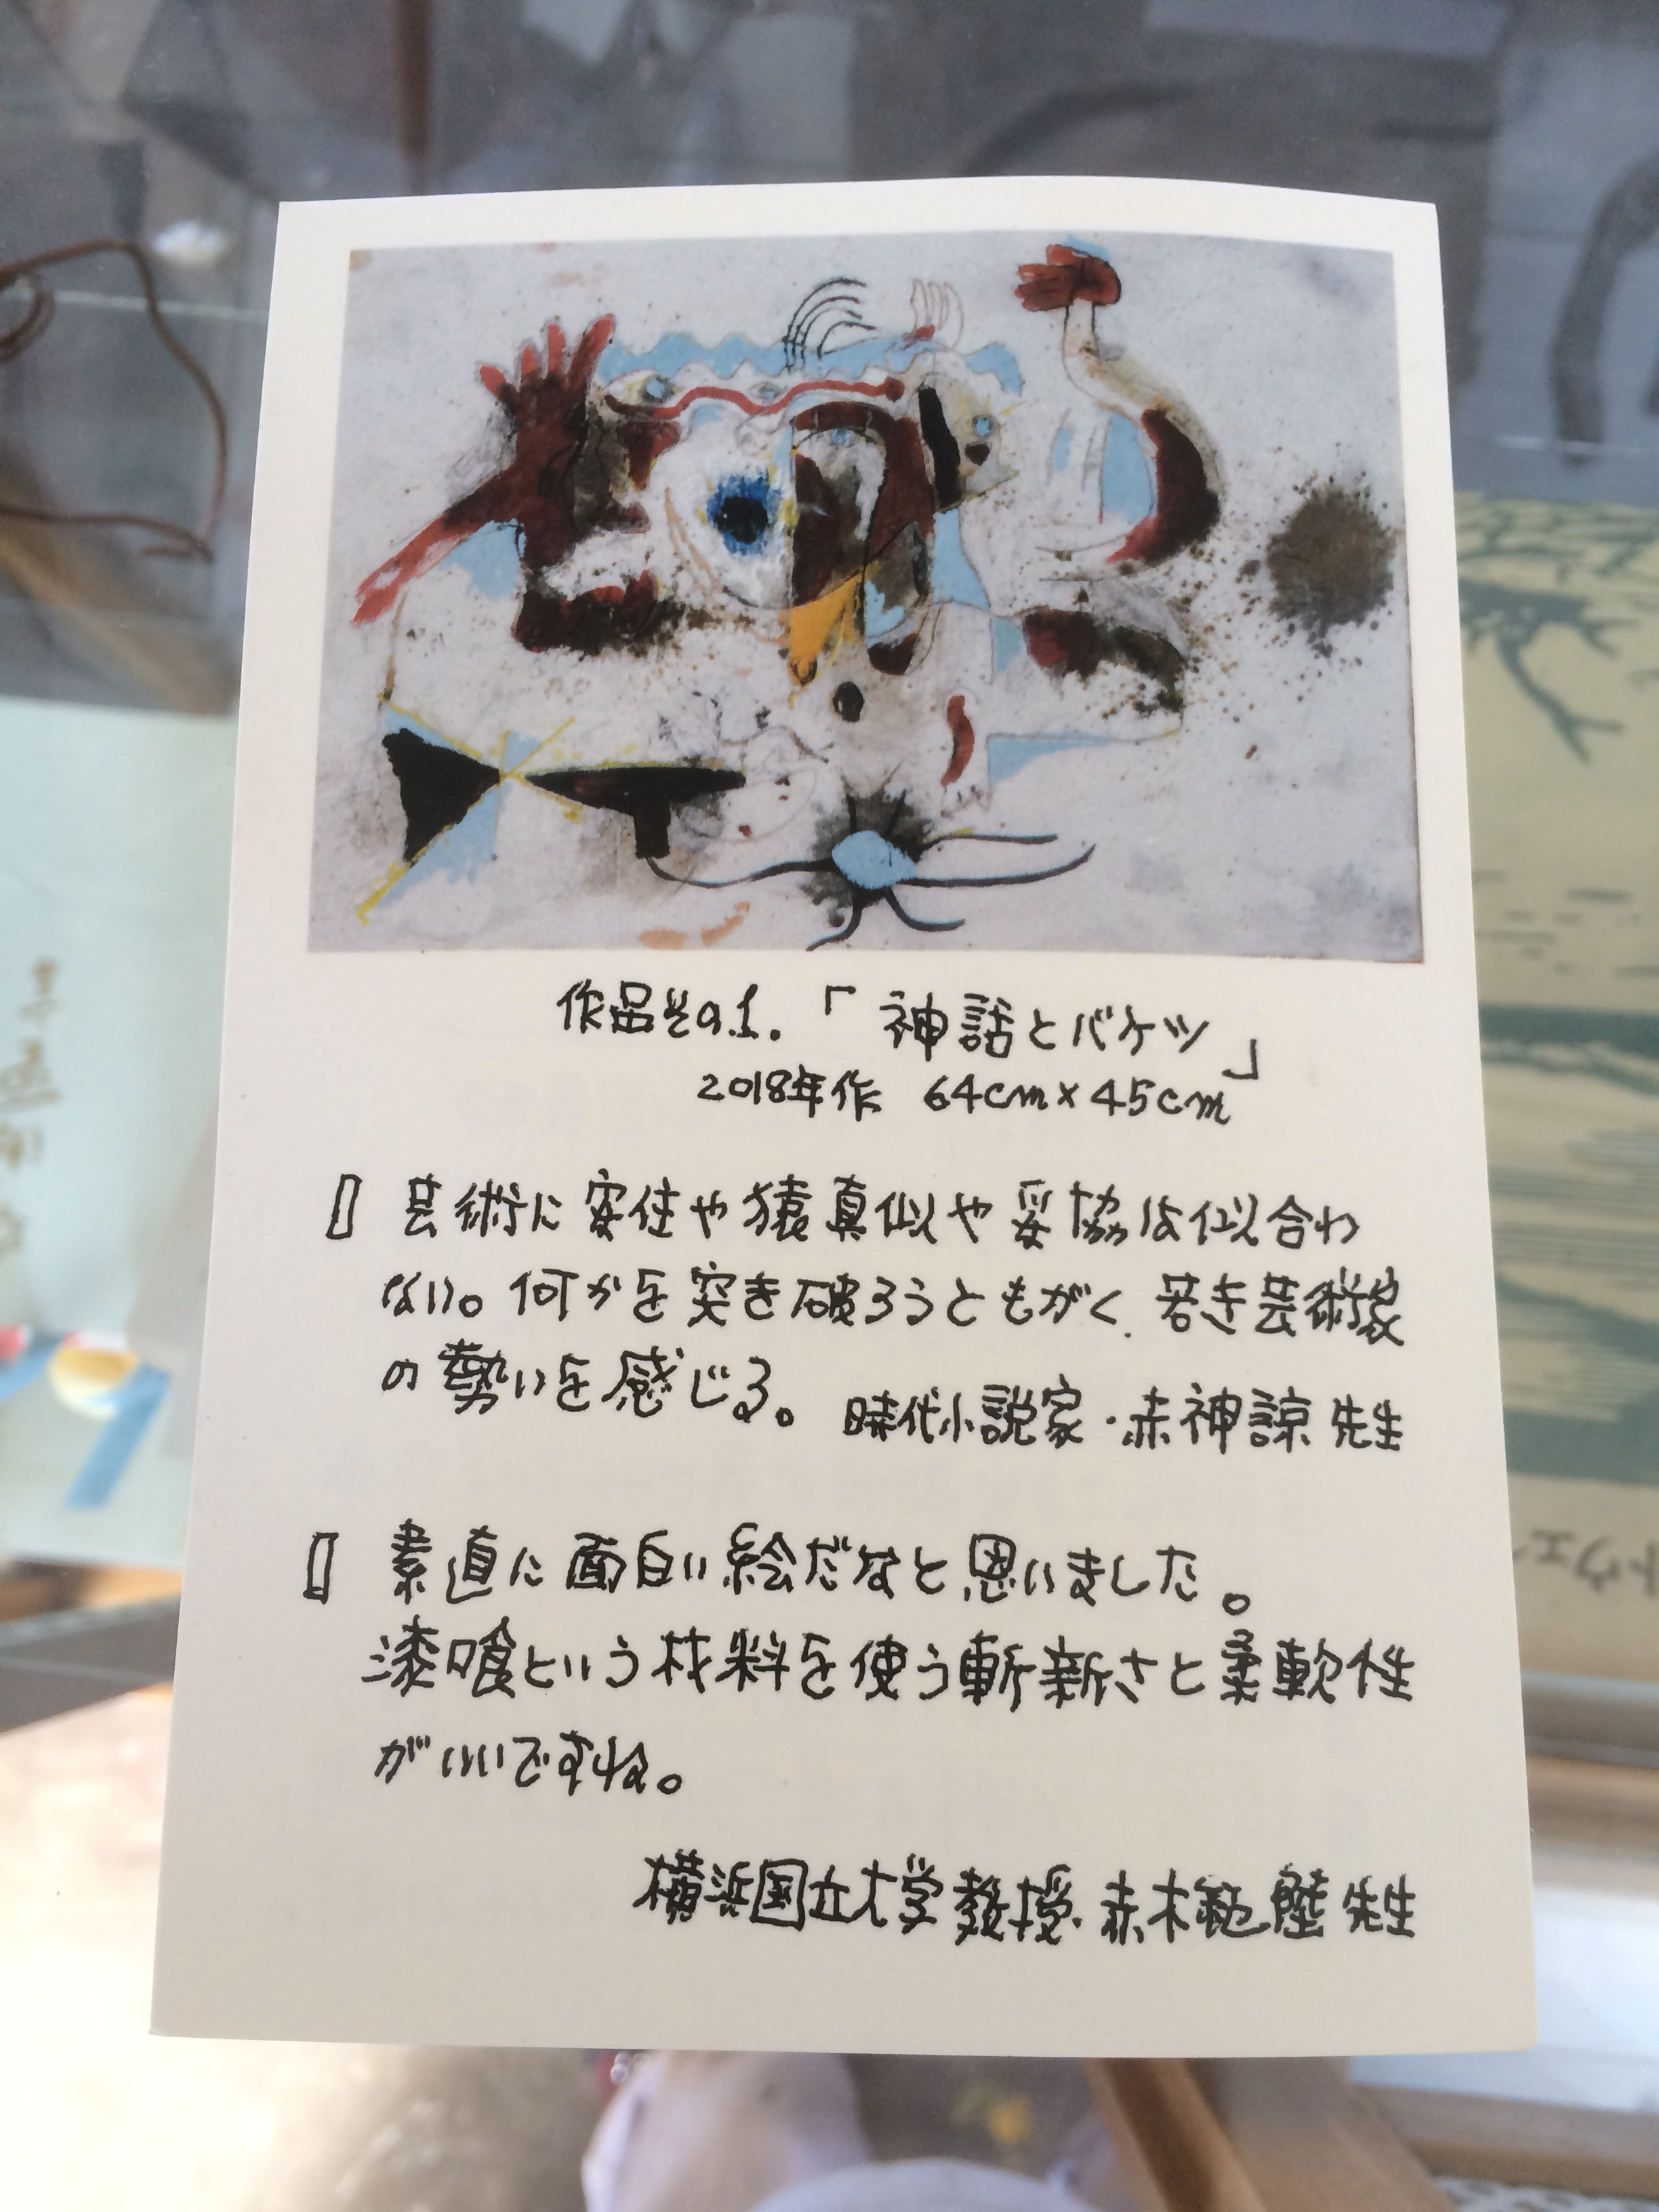 作品その1.「神話とバケツ」
2018年作 64cm×45cm
芸術に安住や猿真似や妥協は似合わ
ない。何かを突き破ろうともがく、若き芸術家
の勢いを感じる。 時代小説家・赤神諒先生
素直に面白い絵だなと思いました。
漆喰という材料を使う斬新さと柔軟性
がいいですね。
横浜国立大学教授・赤木範陸先生